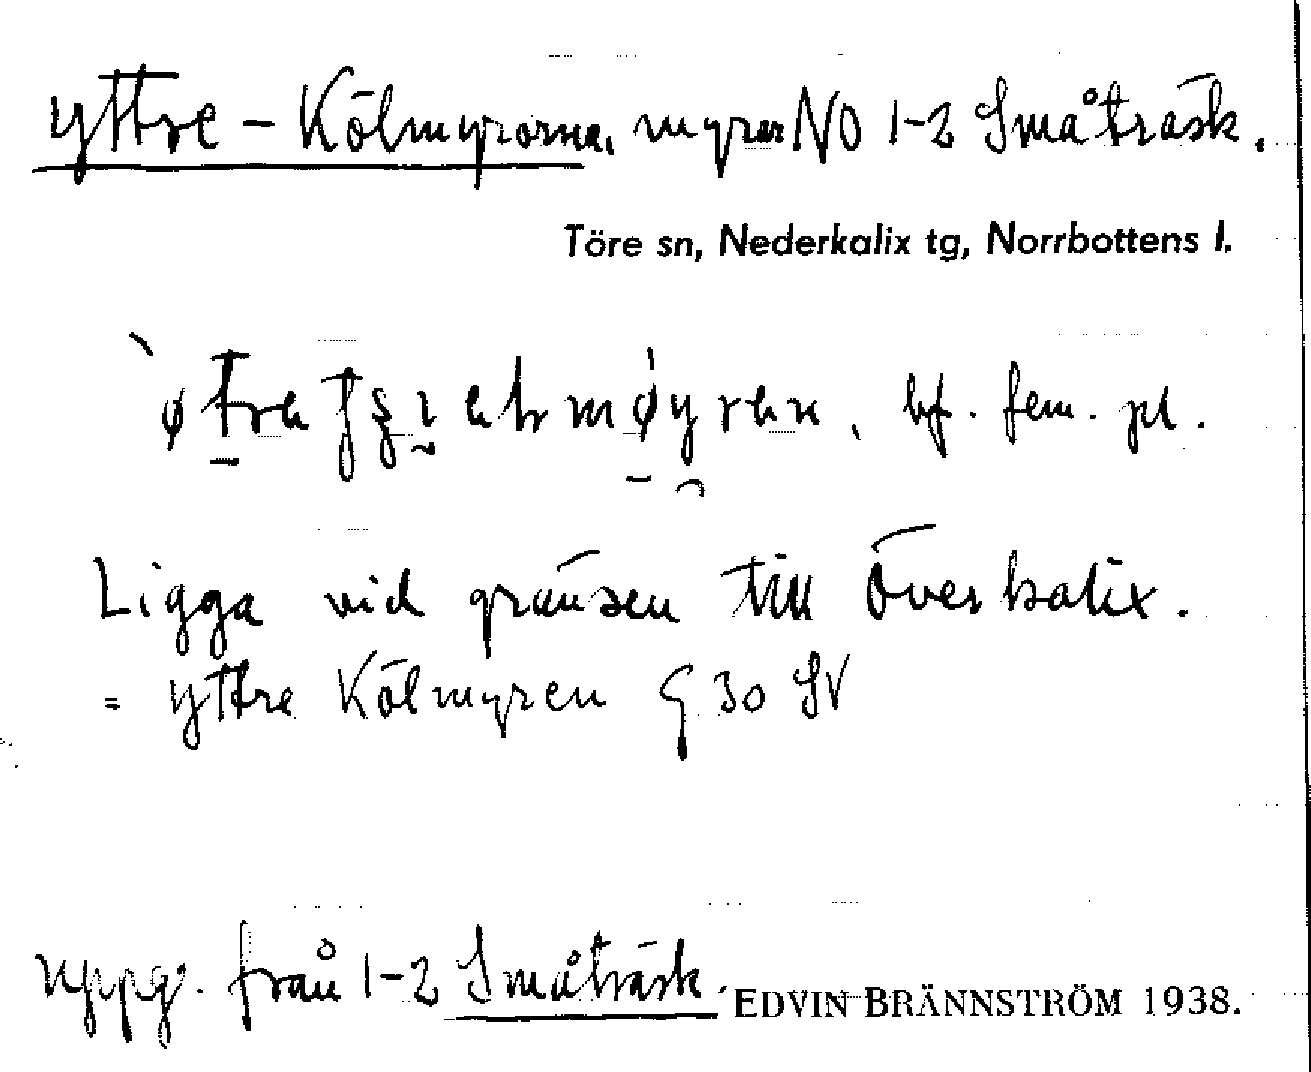 Yttre-Kölmyrorna, myrar NO 1-2 Småträsk.
Töre sn, Nederkalix tg, Norrbottens l.
bf. fem. pl.
Ligga vid gränsen till Överkalix.
= Yttre Kölmyren G 30 SV
Uppg. från 1-2 Småträsk.
EDVIN BRÄNNSTRÖM 1938.